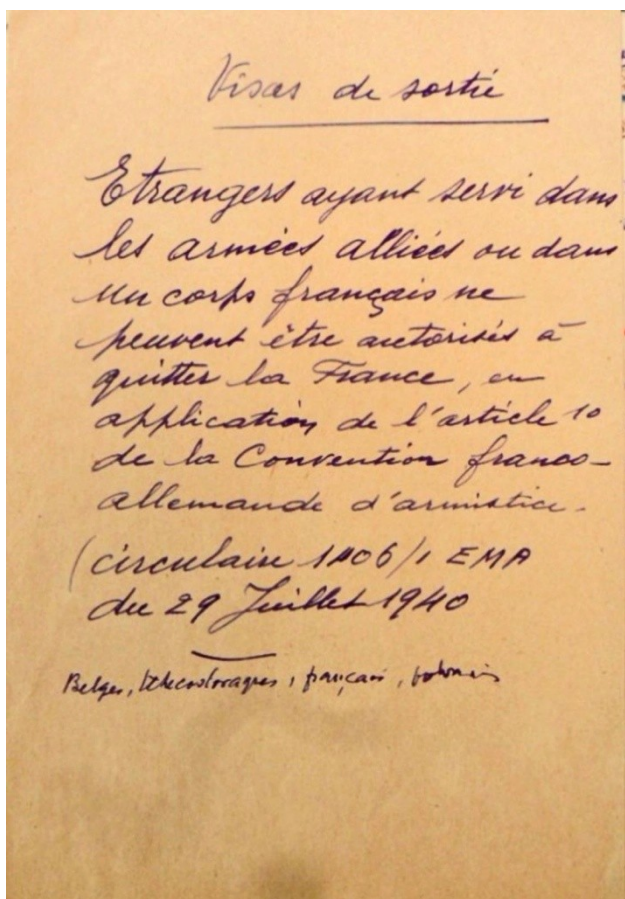 Visas de sortie
Etrangers ayant servi dans
les armées alliées ou dans
un corps français ne
peuvent être autorisés à
quitter la France, en
application de l'article 10
de la Convention franco-
allemande d'armistice.
(circulaire 1406/1 EMA
du 29 Juillet 1940
Belges, tchecoslovaques, français, polonais